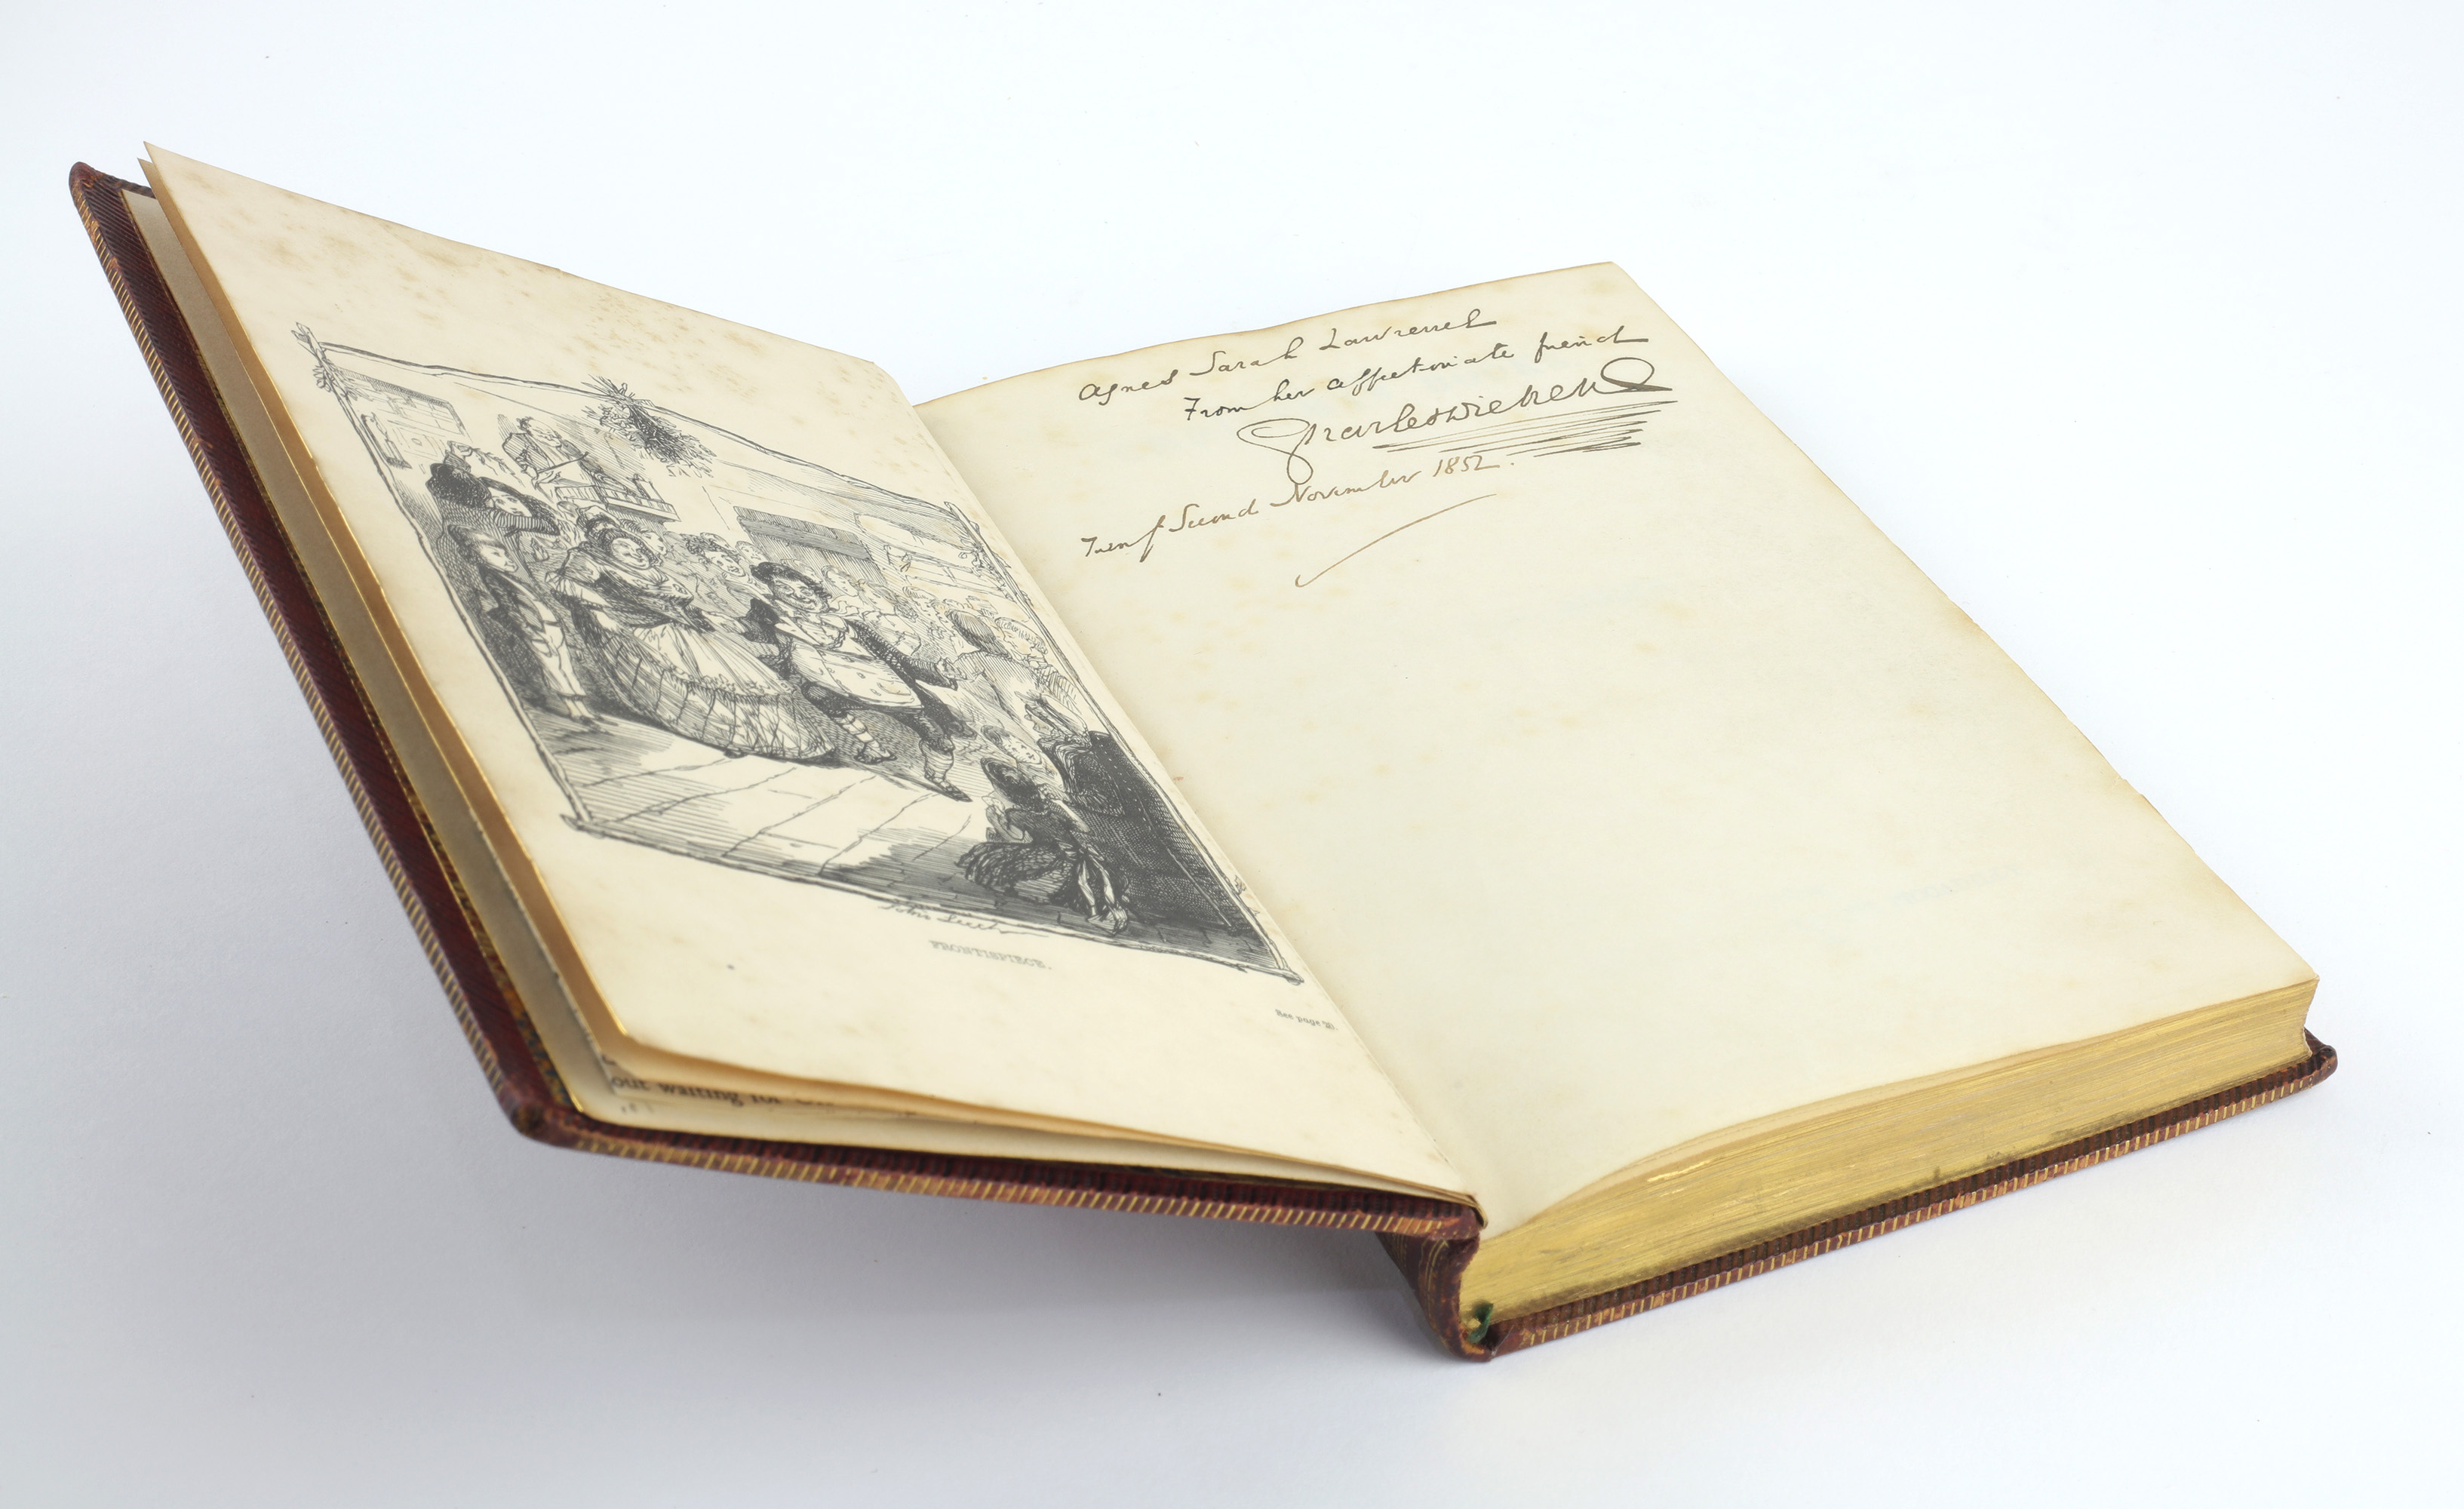 John Leech
FRONTISPIECE.
See page
out waiting for
Agnes Sarah Lawrence
From her affectionate friend
Charles Dickens
Twenty Second November 1852.